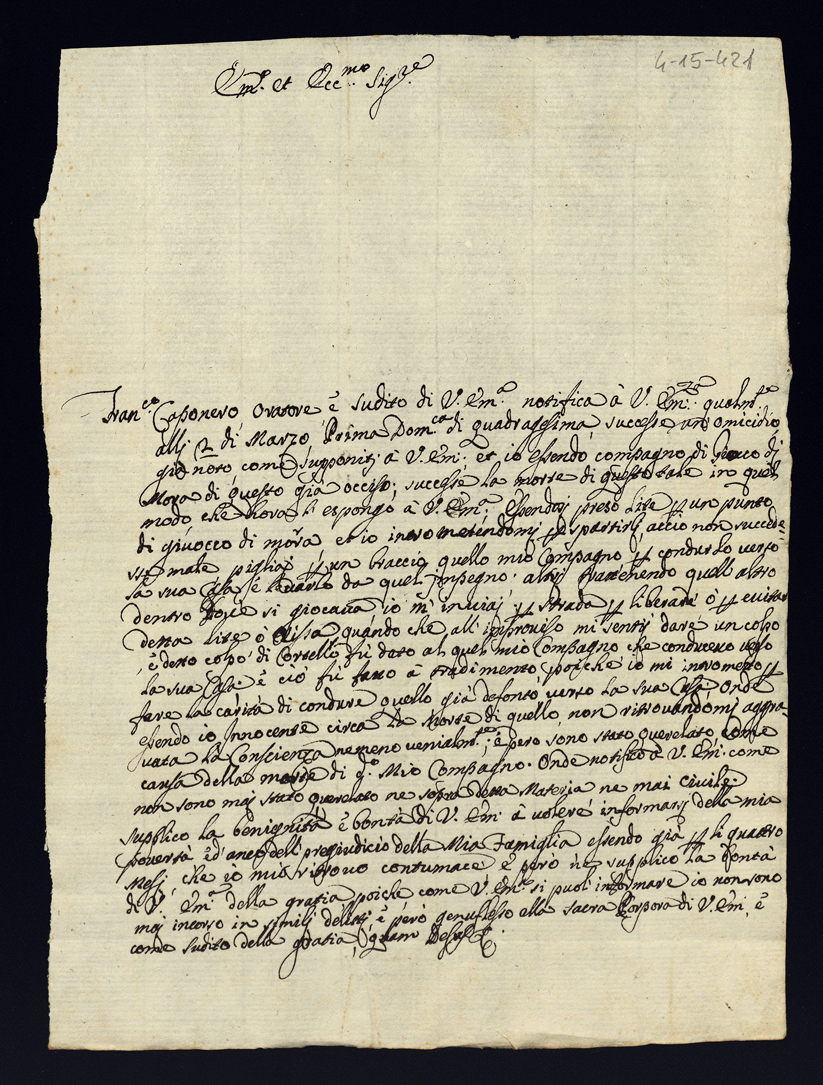 4-15-421
Em.º et Ecc.mo Sig.re
Fran.co Caponero Oratore è sudito di V. Em.a notifica à V. Em.za qualm.te
alli 2 di Marzo Prima Dom.ca di quadragesima successe un omicidio
già noto come supponj à V. Em: et io essendo compagno di giuoco di
Mora di questo già occiso; successe la morte di questo tale in quel
modo che hora li espongo à V. Em.a Essendosj preso lite p un punto
di giuocco di mora et io intrometendomj p spartirlj acciò non succede
sse male pigliaj p un braccio quello mio Compagno p condurlo verso
la sua Casa è levarlo da quel Impegno: altrj trattenendo quell altro
dentro dove si giocava io m' inviaj p strada p liberare ò p evitar
detta lite ò Rissa quando che all' improviso mi sentij dare un colpo
, è detto colpo di Cortello fù dato al quel mio Compagno che conducevo verso
la sua Casa: è ciò fù fatto à tradimento poiche io mi intromettevo p
fare la carità di condure quello già defonto verso la sua Casa: Onde
essendo io Innocente circa la Morte di quello, non ritrovandomj aggra-
vata la Conscienza nemeno venialm.te; è però sono stato querelato come
causa della morte di q.o Mio Compagno. Onde notifico à V. Em: come
non sono maj stato querelato ne sopra detta Materia ne mai civile:
supplico la benignità è bontà di V. Em: à volere informarsj della mia
povertà ed' anco dell pregiudicio della Mia Famiglia essendo già p li quatro
Mesj che io mi ritrovo contumace: è però ne supplico la bontà
di V. Em.a della gratia poiche come V. Em.a si puoli informare io non sono
maj incorso in similj delittj è però genuflesso ella sacra Porpora di V. Em: è
come sudito della gratia, Quam Deus &